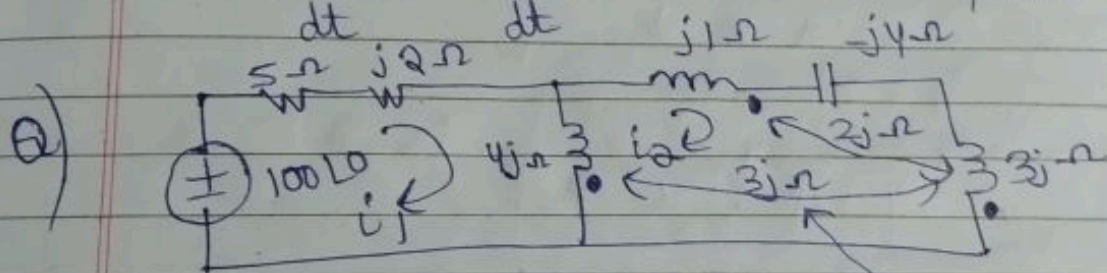 dt dt
5Ω j2Ω j1Ω -j4Ω
Q) 100∠0 i1 4jΩ i2 2jΩ 3jΩ 3jΩ